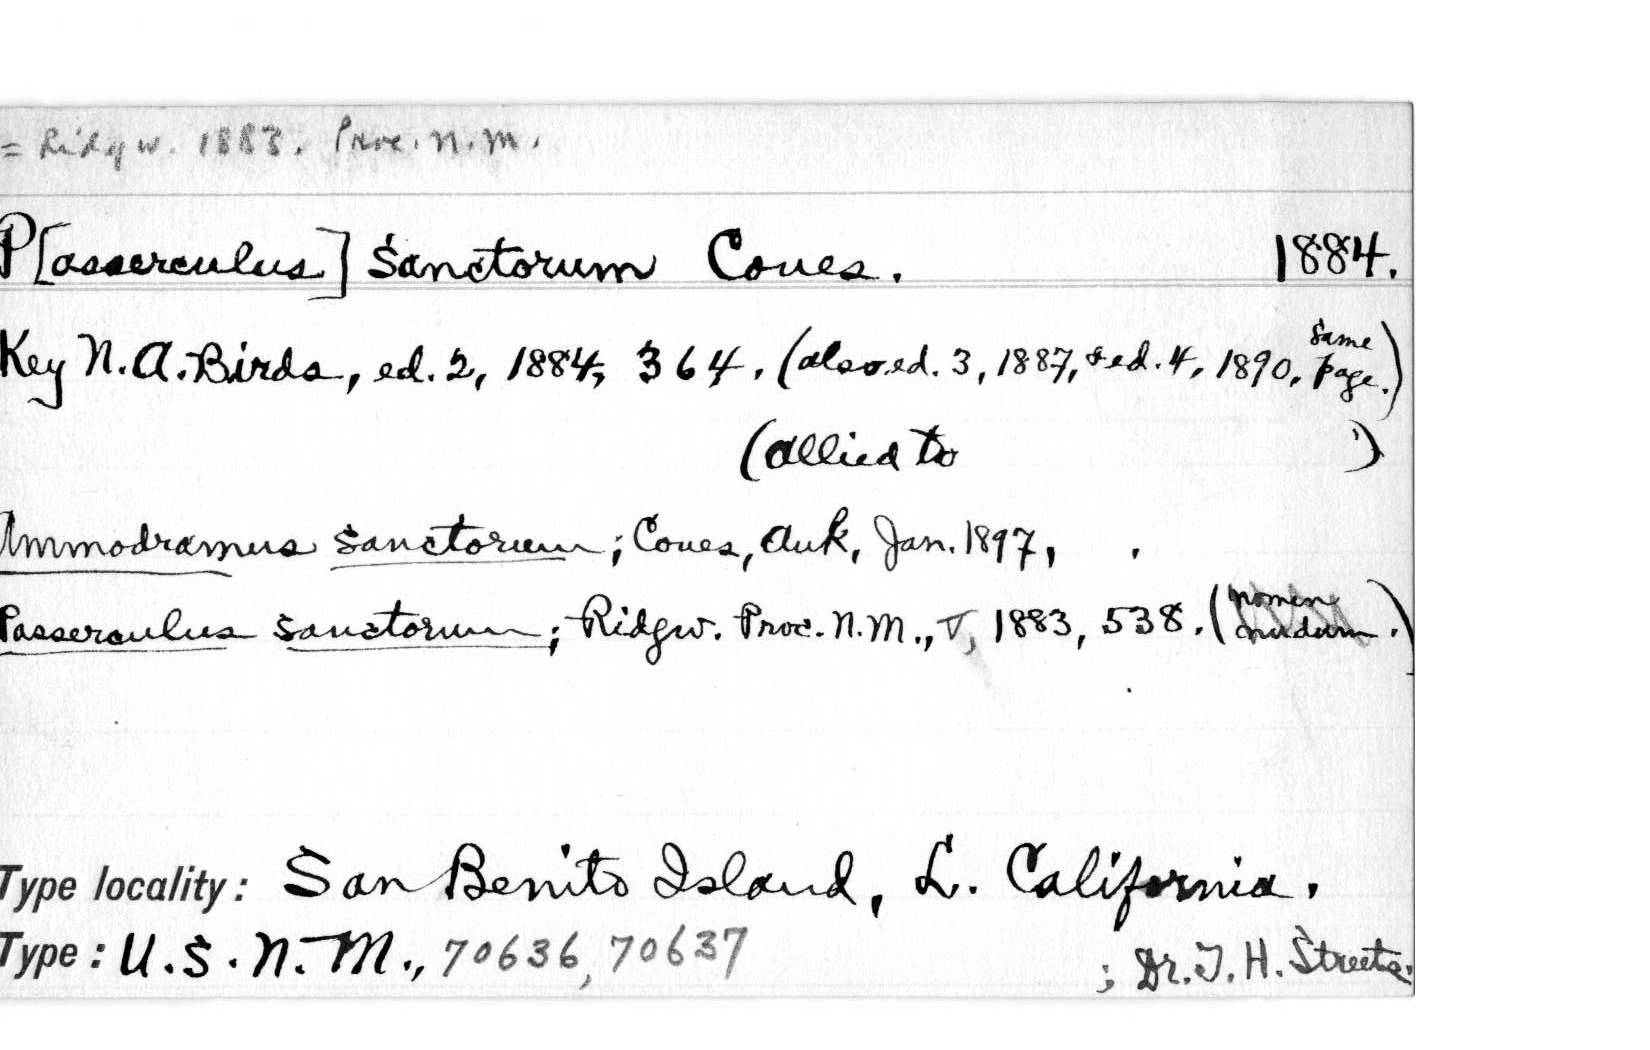 = Ridgw. 1883. Proc. N. M.
P[asserculus] sanctorum Coues. 1884.
Key N. A. Birds, ed. 2, 1884, 364. (also ed. 3, 1887, & ed. 4, 1890, same page.)
(allied to )
Ammodramus sanctorum; Coues, Auk, Jan. 1897, .
Passerculus sanctorum; Ridgw. Proc. N. M., V, 1883, 538. (nomen nudum.)
Type locality: San Benito Island, L. California.
Type: U. S. N. M., 70636, 70637 ; Dr. T. H. Streets.